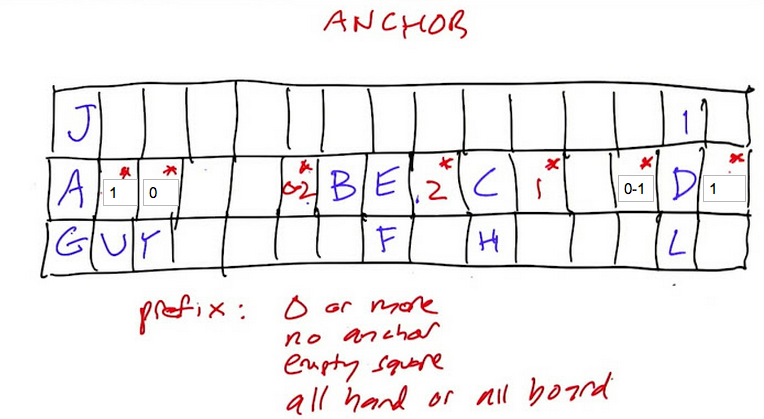 ANCHOR
J I
A 1* 0* 0-2* B E 2* C 1* 0-1* D 1*
G U Y F H L
prefix: 0 or more
no anchor
empty square
all hand or all board